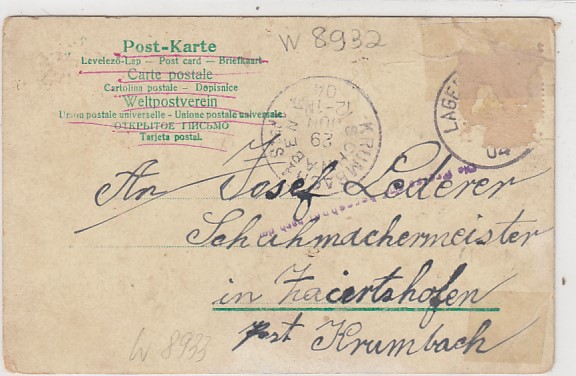 Post-Karte
Levelező-Lap — Post card — Briefkaart
Carte postale
Cartolina postale – Dopisnice
Weltpostverein
Union postale universelle - Unione postale universale
ОТКРЫТОЕ ПИСЬМО
Tarjeta postal.
W 8932
KRUMBACH
SCHWABEN
29
JUN
12-1
04
LAGE
04
An Josef Lederer
Schuhmachermeister
in Zaiertshofen
Post Krumbach
W 8933